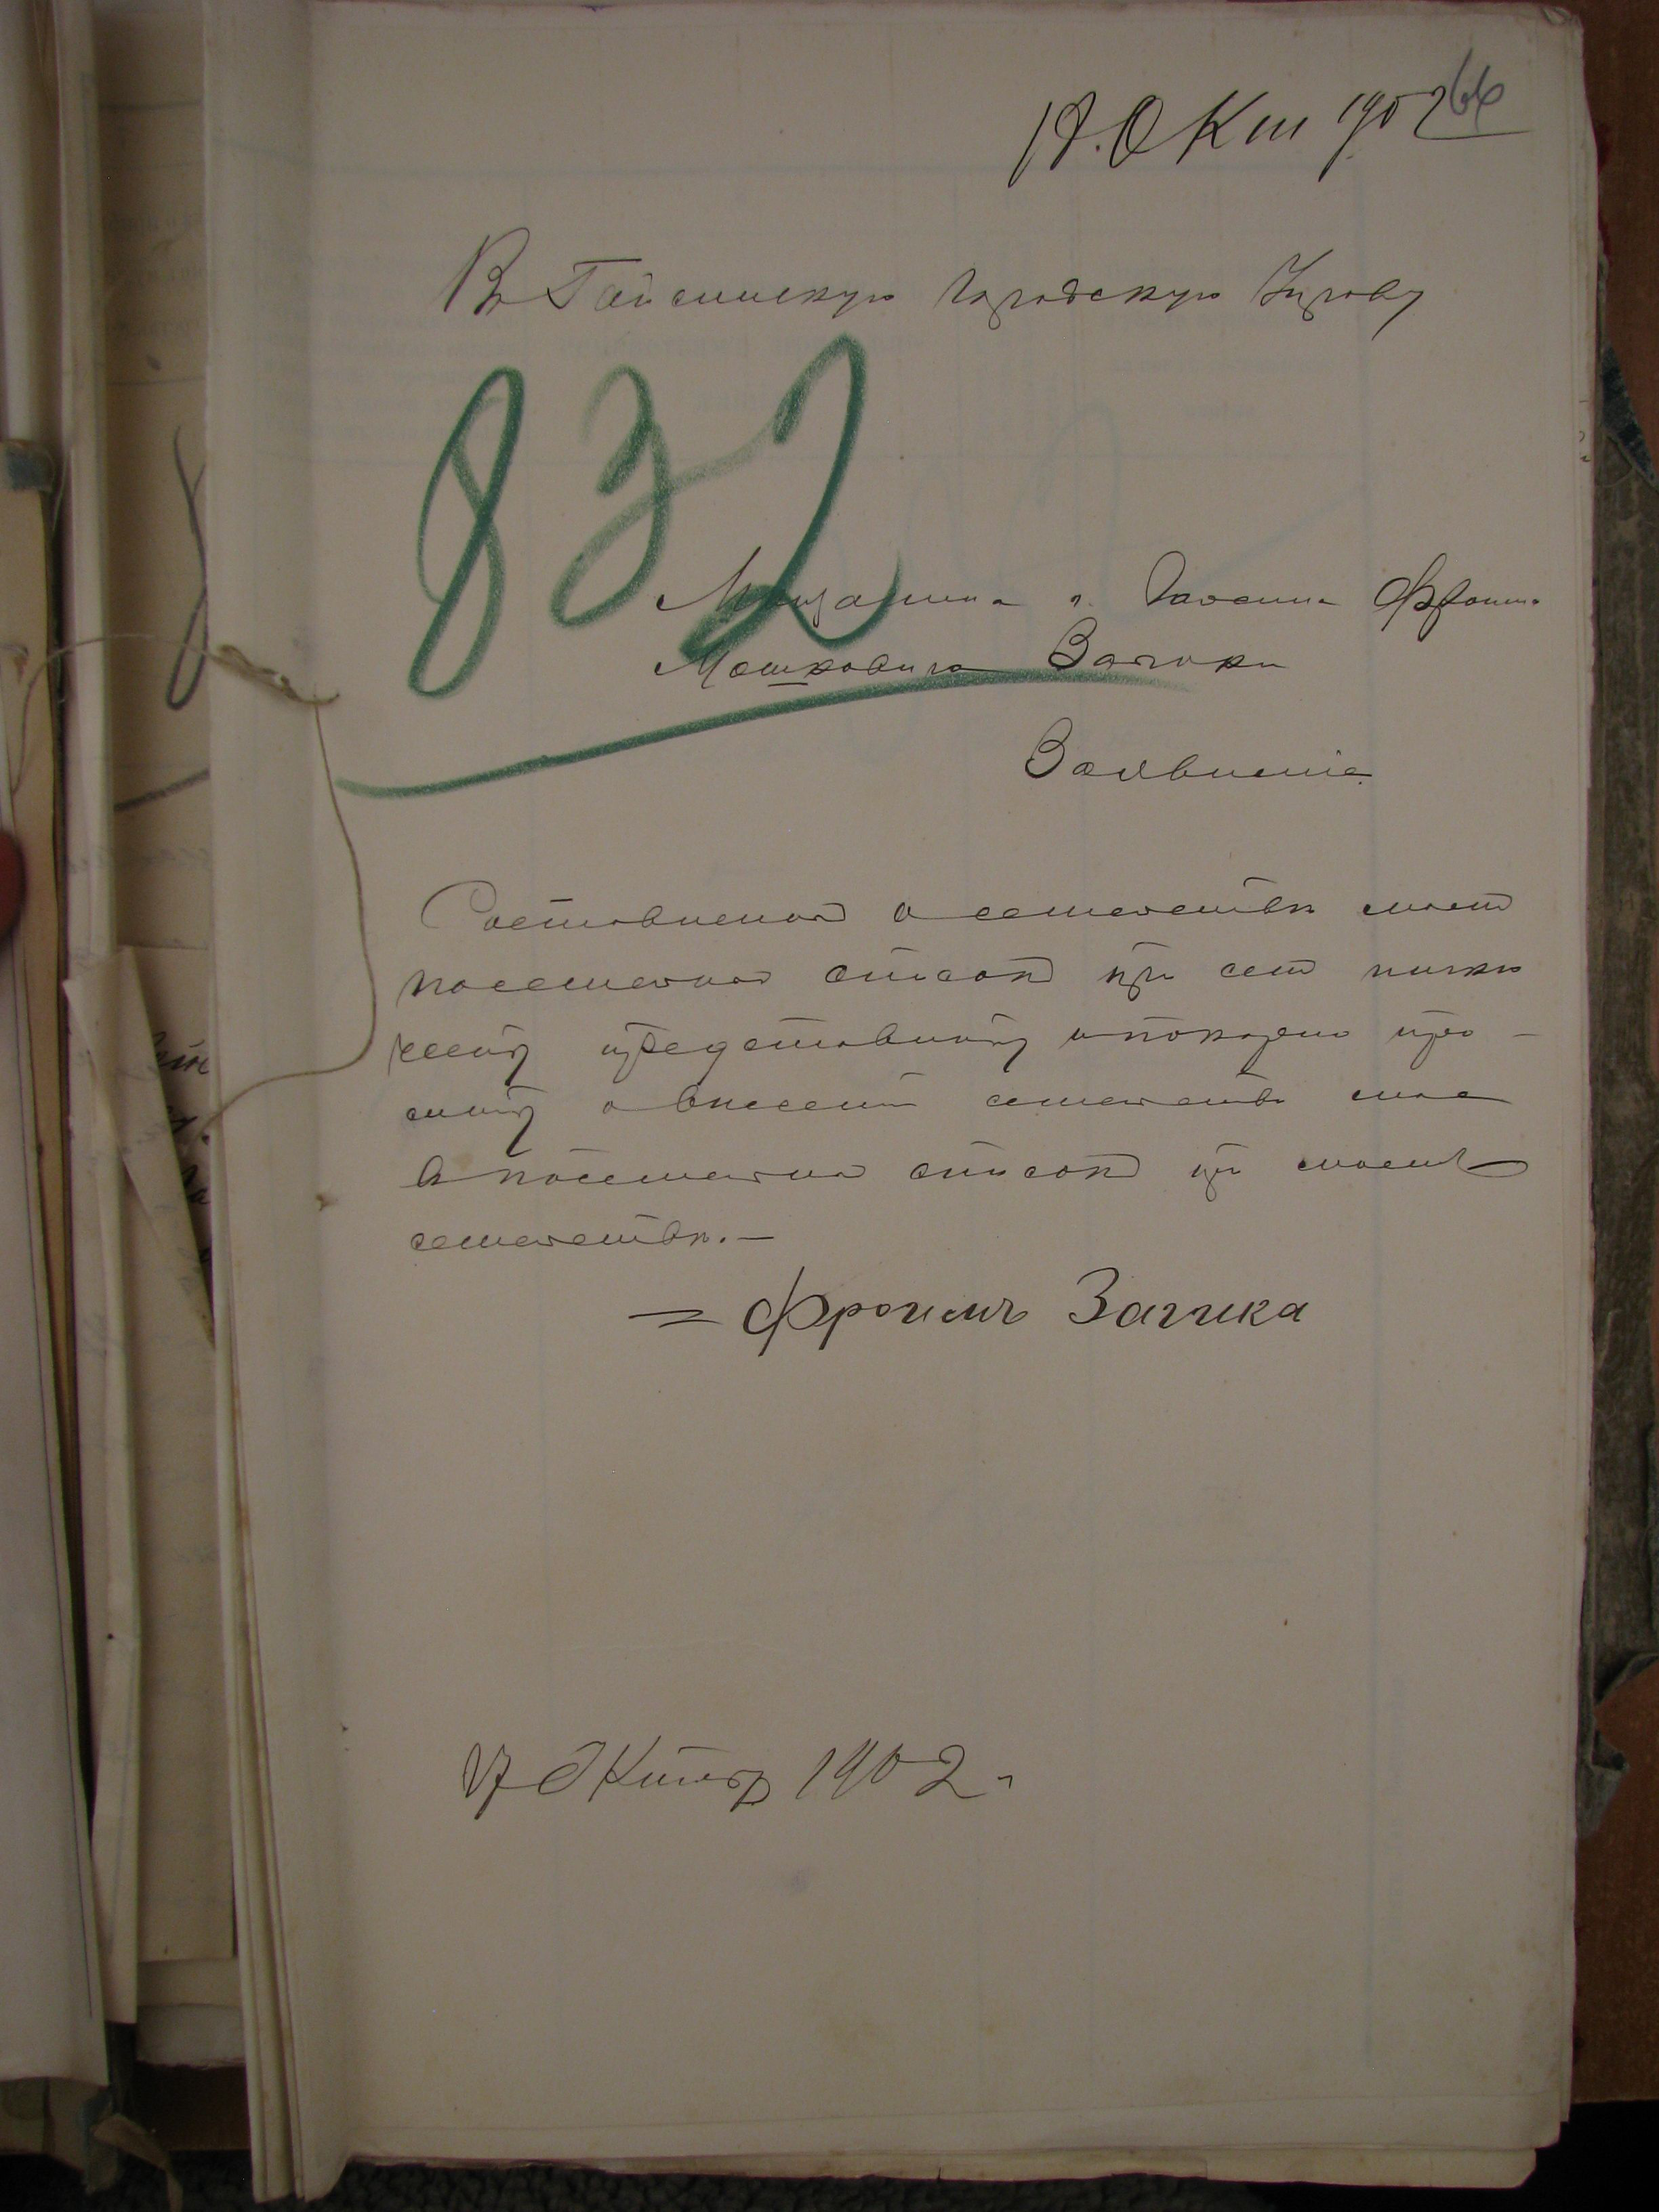 66
18. Окт 1902
В Гайсинскую Городскую Управу
832
Мещанина г. Гайсина Фроима
Мошковича Заики
Заявление
Составленный о семействе моем
посемейный список при сем
представить и покорно про-
сить о внесении семейства мое
в посемейный список при моем
семействе. —
= Фроимъ Заика
17 Октября 1902 г